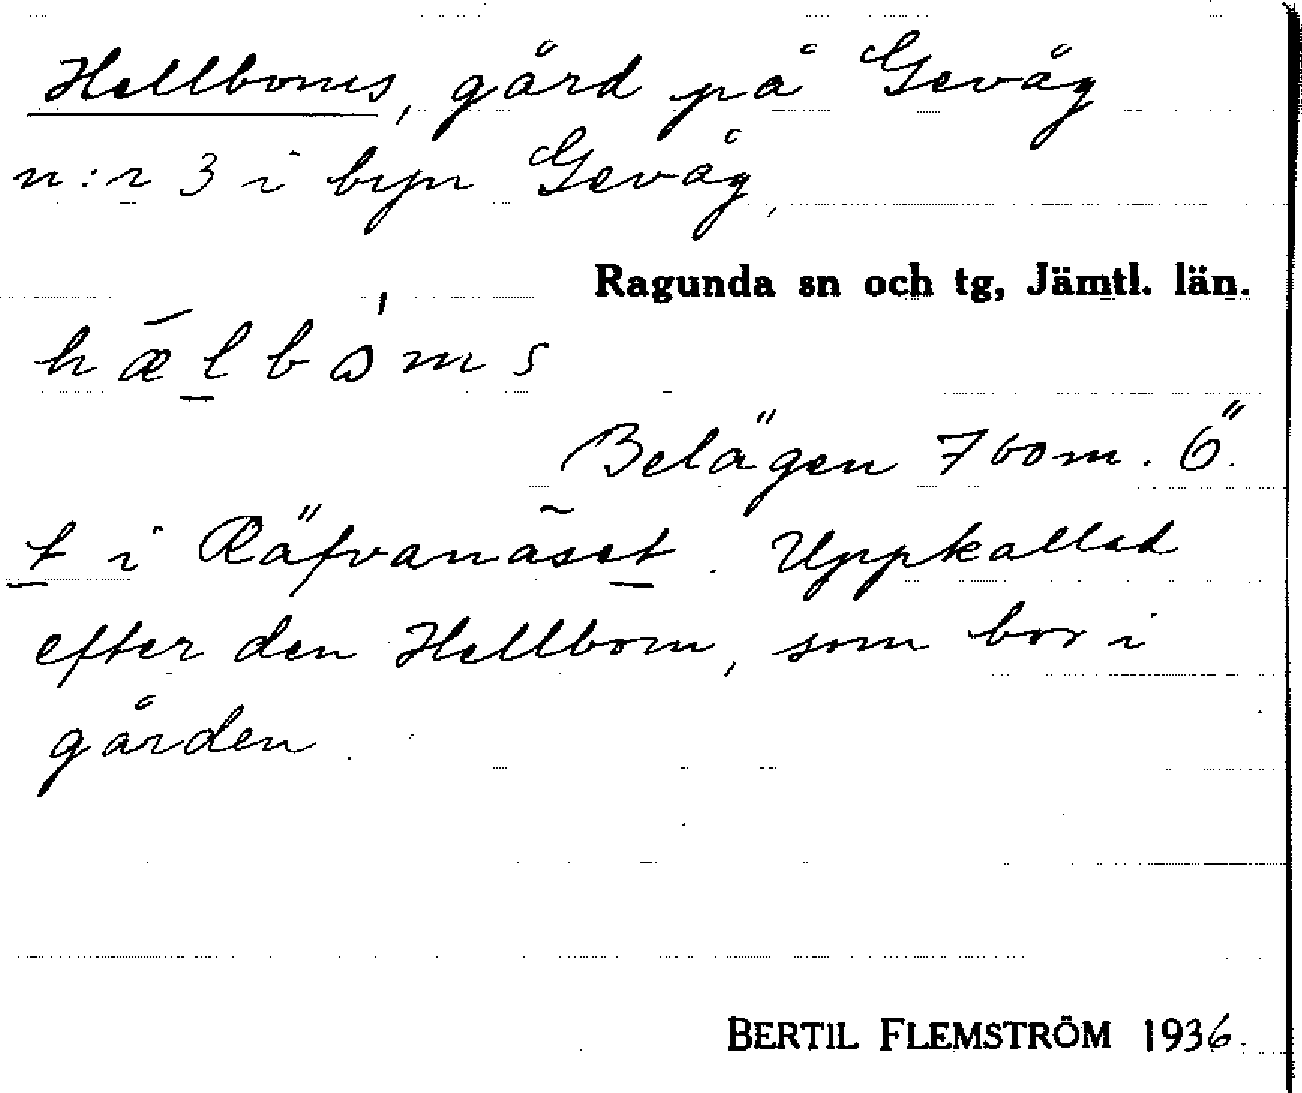 Hellboms, gård på Gevåg
n:r 3 i byn Gevåg,
Ragunda sn och tg, Jämtl. län.
hælbòms
Belägen 700 m. Ö.
t i Räfvanäset. Uppkallad
efter den Hellbom, som bor i
gården.
BERTIL FLEMSTRÖM 1936.